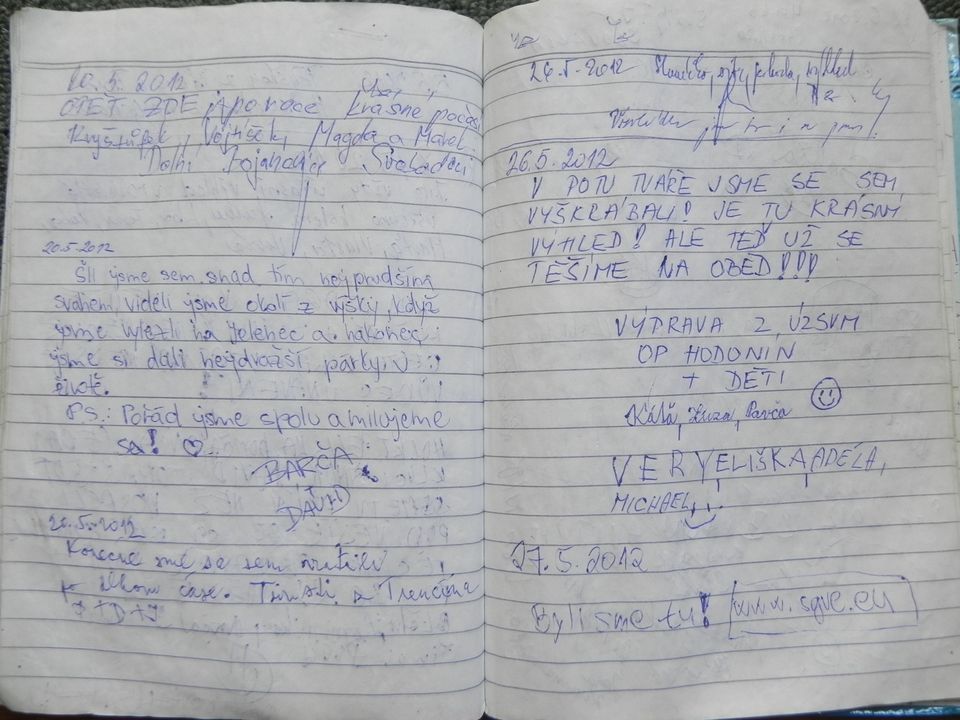 5. 2012
OPĚT ZDE krásné počasí
Kryštůfek, Vojtíšek, Magda a Marek
Dolní Bojanovice
20.5.2012
Šli jsme sem snad tím nejprudším
svahem, viděli jsme okolí z výšky, když
jsme vylezli na Jelenec a nakonec
jsme si dali nejdražší párky v
životě.
PS.: Pořád jsme spolu a milujeme
se! ♡
BARČA
DAVID
26.5.2012
Konečně sme se sem vrátili
po dlhom čase. Turisti z Trenčína
J+D+J
26.5.2012
26.5.2012
V POTU TVÁŘE JSME SE SEM
VYŠKRÁBALI! JE TU KRÁSNÝ
VÝHLED! ALE TEĎ UŽ SE
TĚŠÍME NA OBĚD!!!
VÝPRAVA Z ÚZSVM
OP HODONÍN
+ DĚTI
Káťa, Zuza, Pavča
VERY, ELIŠKA, ADÉLA,
MICHAEL
27.5.2012
Byli sme tu! www.sgve.eu